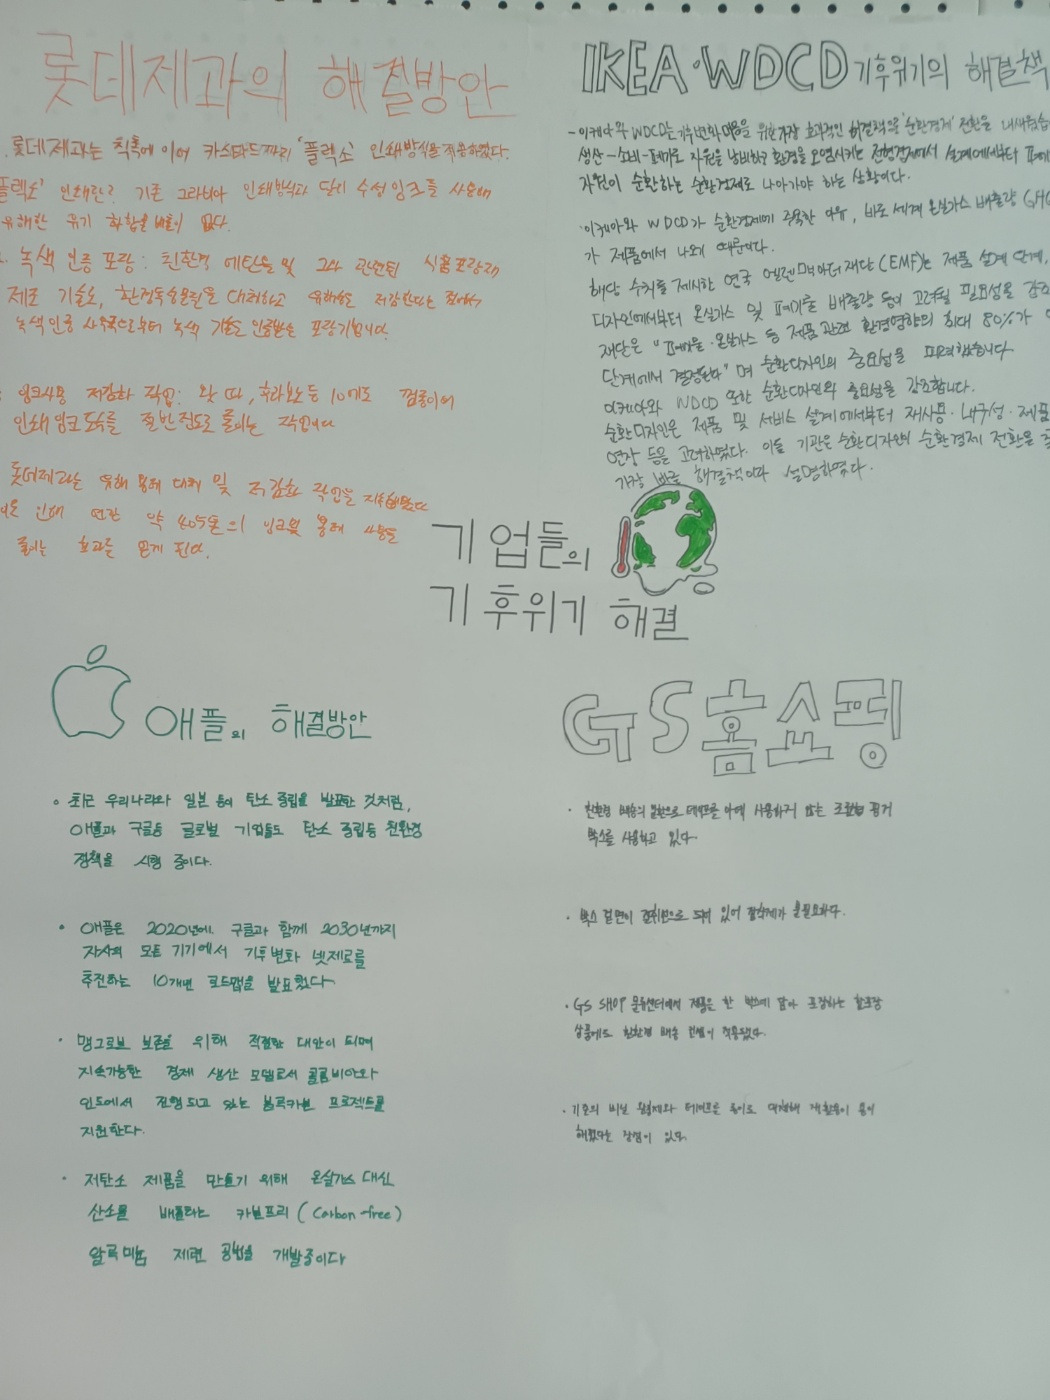 롯데제과의 해결방안
롯데제과는 칙촉에 이어 카스타드까지 '플렉소' 인쇄방식을 적용하였다.
플렉소' 인쇄란? 기존 그라비아 인쇄방식과 달리 수성잉크를 사용해
유해한 유기 화합물 배출이 없다.
녹색 인증 포장: 친환경 에탄올 및 그와 관련된 식품포장재
제조 기술로, 환경독성용매를 대체하고 유해성 저감한다는 점에서
녹색인증 사무국으로부터 녹색 기술로 인증받은 포장기법이다.
잉크사용 저감화 작업: 왓 따, 후라보노 등 10여도 껌종이에
인쇄 잉크 도수를 절반 정도로 줄이는 작업이다
롯데제과는 유해 용매 대체 및 저감화 작업을 지속했다
인해 연간 약 405톤의 잉크및 용매 사용을
줄이는 효과를 얻게 된다.
IKEA·WDCD 기후위기의 해결책
-이케아와 WDCD는 기후변화 대응을 위한 가장 효과적인 해결책으로 '순환경제' 전환을 내세웠습
생산-소비-폐기로 자원을 낭비하고 환경을 오염시키는 선형경제에서 설계에서부터 폐기
자원이 순환하는 순환경제로 나아가야 하는 상황이다.
·이케아와 WDCD가 순환경제에 주목한 이유, 바로 세계 온실가스 배출량 (GHG
가 제품에서 나오기 때문이다.
해당 수치를 제시한 영국 엘렌 맥아더 재단(EMF)는 제품 설계 단계,
디자인에서부터 온실가스 및 폐기물 배출량 등이 고려될 필요성을 강조
재단은 "폐기물·온실가스 등 제품 관련 환경영향의 최대 80%가
단계에서 결정된다" 며 순환디자인의 중요성을 피력했습니다
이케아와 WDCD 또한 순환디자인의 중요성을 강조합니다.
순환디자인은 제품 및 서비스 설계에서부터 재사용·내구성·제품
연장 등을 고려하였다. 이들 기관은 순환디자인의 순환경제 전환을
가장 빠른 해결책이다 설명하였다.
기업들의
기후위기 해결
애플의 해결방안
◦ 최근 우리나라와 일본 등이 탄소 중립을 발표한 것처럼,
애플과 구글등 글로벌 기업들도 탄소 중립등 친환경
정책을 시행 중이다.
· 애플은 2020년에 구글과 함께 2030년까지
자사의 모든 기기에서 기후변화 넷제로를
추진하는 10개년 로드맵을 발표했다
· 맹그로브 보존을 위해 적절한 대안이 되며
지속가능한 경제 생산 모델로서 콜롬비아와
인도에서 진행되고 있는 블루카본 프로젝트를
지원한다.
· 저탄소 제품을 만들기 위해 온실가스 대신
산소를 배출하는 카본프리 (Carbon-free)
알루미늄 제련 공법을 개발중이다
GS홈쇼핑
· 친환경 배송의 일환으로 테이프를 아예 사용하지 않는 조립형 종이
박스를 사용하고 있다
· 박스 겉면이 접착면으로 되어 있어 접착제가 불필요하다.
· GS SHOP 물류센터에서 제품을 한 박스에 담아 포장하는 합포장
상품에도 친환경 배송 컨셉이 적용됐다.
· 기존의 비닐 완충재와 테이프를 종이로 대체해 재활용이 용이
해졌다는 장점이 있다.